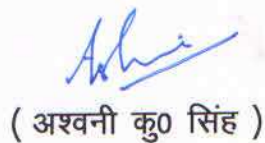 ( अश्वनी कु0 सिंह )